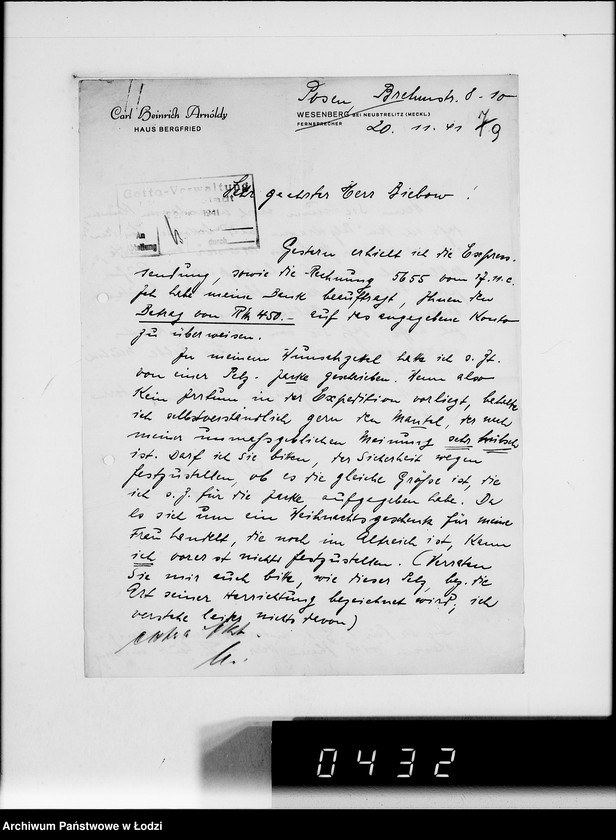 Carl Heinrich Arnoldy
HAUS BERGFRIED
Posen, Brehmstr. 8-10
WESENBERG BEI NEUSTRELITZ (MECKL.)
FERNSPRECHER
20. 11. 41
Getto-Verwaltung
1941
An
Sehr geehrter Herr Biebow!
Gestern erhielt ich die Express-
sendung, sowie die Rechnung 5655 vom 17.11.c.
Ich habe meine Bank beauftragt, Ihnen den
Betrag von RM 450.- auf das angegebene Konto
zu überweisen.
In meinem Wunschzettel hatte ich s. Zt.
von einer Pelz-Jacke geschrieben. Wenn also
kein Irrtum in der Expedition vorliegt, behalte
ich selbstverständlich gern den Mantel, der nach
meiner unmaßgeblichen Meinung sehr hübsch
ist. Darf ich Sie bitten, der Sicherheit wegen
festzustellen, ob es die gleiche Größe ist, die
ich s. Z. für die Jacke aufgegeben habe. Da
es sich um ein Weihnachtsgeschenk für meine
Frau handelt, die noch im Altreich ist, kann
ich vorerst nichts feststellen. (Verraten
Sie mir auch bitte, wie dieser Pelz, bz. die
Art seiner Herrichtung bezeichnet wird, ich
verstehe leider nichts davon)
0432
Archiwum Państwowe w Łodzi